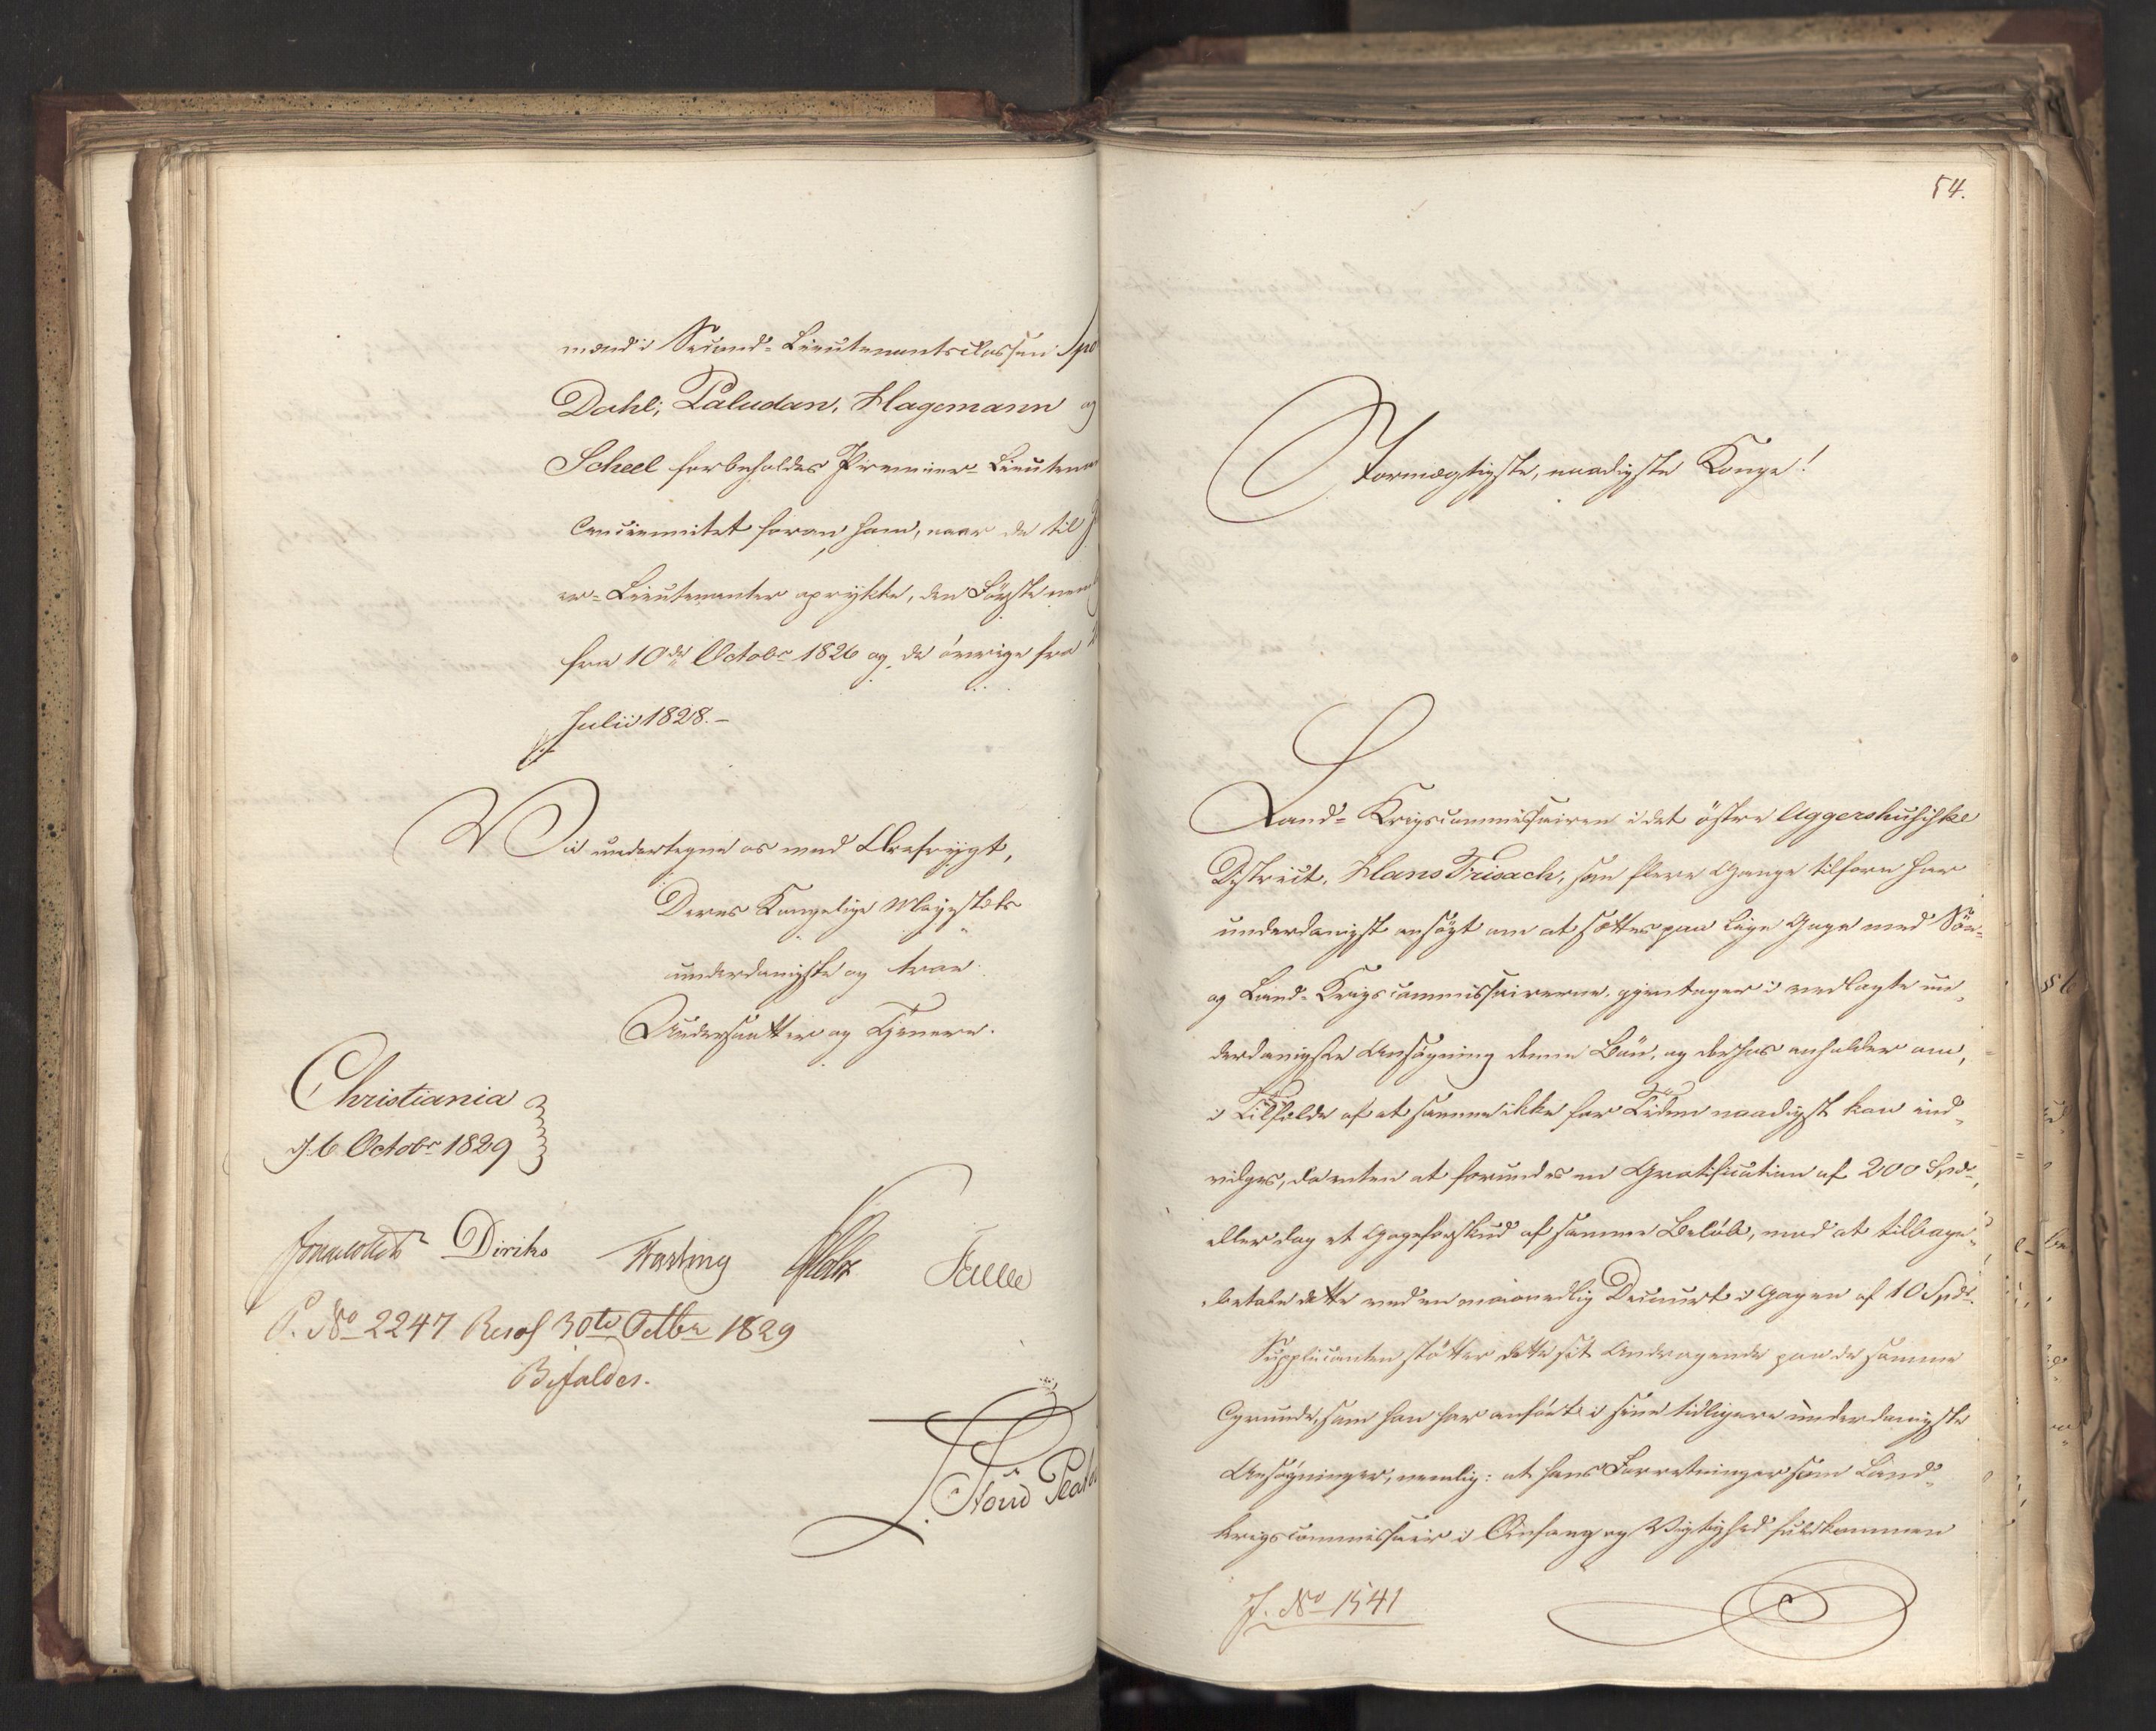 mænd i Secund-Lieutenantsclassen
Dahl, Paludan, Hagemann og
Scheel forbeholdes Premier-Lieutena
Anciennitet foran ham, naar de til
er-Lieutenanter oprykke, den Første
fra 10de Octobr 1826 og de øvrige fra
Julii 1828.-
Vi undertegne os med Ærefrygt,
Deres Kongelige Majestæts
underdanigste og troe
Undersaatter og Tjenere.
Christiania
d. 6 Octobr 1829
Diriks Fasting
P. No 2247 Resol 30te Octbr 1829
Bifaldes.
54.
Stormægtigste, naadigste Konge!
Land-Krigscommissairen i det östre Aggershusiske
District, Hans Frisach, som flere Gange tilforn har
underdanigst ansögt om at sættes paa lige Gage med Söe-
og Land-Krigscommissairerne, gjentager i vedlagte un-
derdanigste Ansögning denne Bön, og derhos anholder om,
i Tilfælde af at samme ikke for Tiden naadigst kan ind-
vilges, da enten at forundes en Gratification af 200 Spd.,
eller dog et Gageforskud af samme Belöb, mod at tilbage-
betale dette ved en maanedlig Decourt i Gagen af 10 Spd.
Supplicanten støtter dette sit Andragende paa de samme
Grunde, som han har anført i sine tidligere underdanigste
Ansøgninger, nemlig: at hans Forretninger som Land-
krigscommissair i Omfang og Vigtighed fuldkommen
J. No 1541